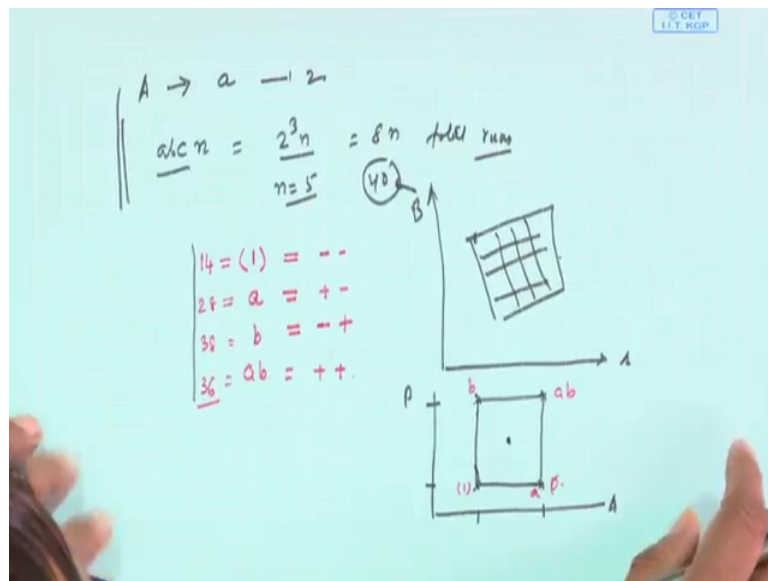 © CET
I.I.T. KGP
A → a — 2
abc n = 2³n = 8n total runs
n=5 40
B
14 = (1) = - -
28 = a = + -
38 = b = - +
36 = ab = + +
A
b ab
(1) a
A